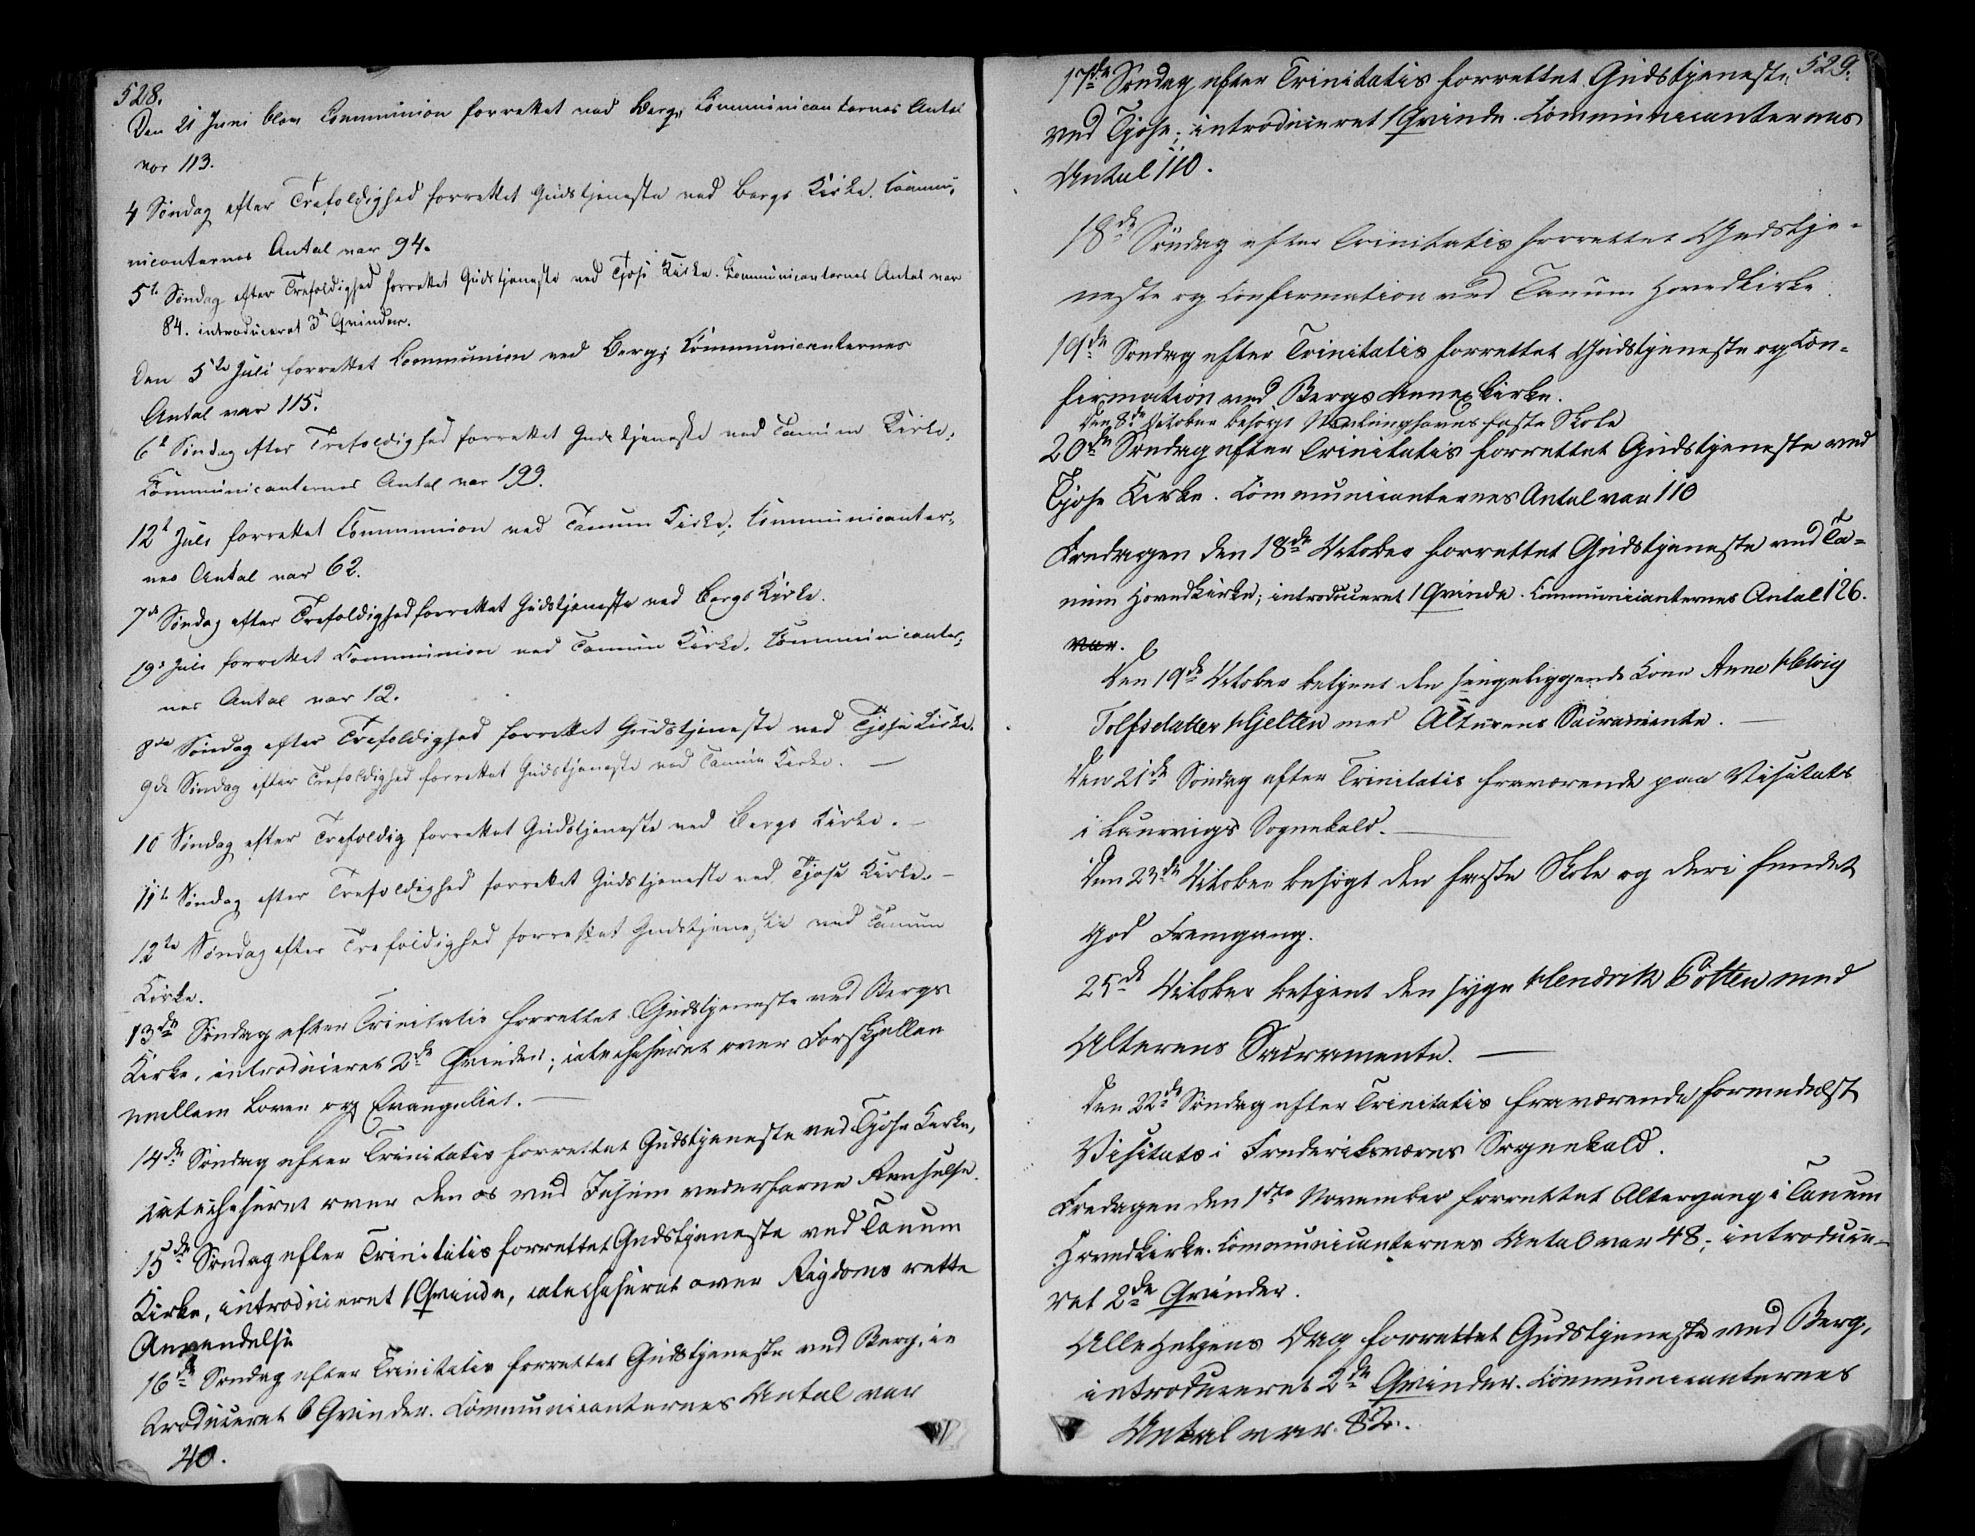 528.
Den 21 Juni blev Communion forrettet ved Berg, Communicanternes Antal
var 113.
4 Søndag efter Trefoldighed forrettet Gudstjeneste ved Bergs Kirke. Commu-
nicanternes Antal var 94.
5te Søndag efter Trefoldighed forrettet Gudstjeneste ved Tjøse Kirke. Communicanternes Antal var
84. introduceret 3de Qvinder.
Den 5te Juli forrettet Communion ved Berg; Communicanternes
Antal var 115.
6t Søndag efter Trefoldighed forrettet Gudstjeneste ved Tanum Kirke.
Communicanternes Antal var 199.
12t Juli forrettet Communion ved Tanum Kirke, Communicanter-
nes Antal var 62.
7de Søndag efter Trefoldighed forrettet Gudstjeneste ved Bergs Kirke.
19d Juli forrettet Communion ved Tanum Kirke. Communicanter-
nes Antal var 12.
8de Søndag efter Trefoldighed forrettet Gudstjeneste ved Tjøse Kirke.
9de Søndag efter Trefoldighed forrettet Gudstjeneste ved Tanum Kirke. —
10 Søndag efter Trefoldig forrettet Gudstjeneste ved Bergs Kirke. —
11te Søndag efter Trefoldighed forrettet Gudstjeneste ved Tjøse Kirke. —
12te Søndag efter Trefoldighed forrettet Gudstjeneste ved Tanum
Kirke.
13de Søndag efter Trinitatis forrettet Gudstjeneste ved Bergs
Kirke, introduceret 2de Qvinder; catechiseret over Forskjellen
mellem Loven og Evangeliet. —
14de Søndag efter Trinitatis forrettet Gudstjeneste ved Tjøse Kirke,
catechiseret over den os ved Jesum vederfarne Frelse.
15de Søndag efter Trinitatis forrettet Gudstjeneste ved Tanum
Kirke, introduceret 1 Qvinde, catechiseret over Rigdoms rette
Anvendelse
16de Søndag efter Trinitatis forrettet Gudstjeneste ved Berg, in
troduceret 6 Qvinder. Communicanternes Antal var
40.
529.
17de Søndag efter Trinitatis forrettet Gudstjeneste
ved Tjøse; introduceret 1 Qvinde. Communicanternes
Antal 110.
18de Søndag efter Trinitatis forrettet Gudstje-
neste og Confirmation ved Tanum Hovedkirke.
19de Søndag efter Trinitatis forrettet Gudstjeneste og Con-
firmation ved Bergs Annexkirke.
Den 8de October besøgt faste Skole
20de Søndag efter Trinitatis forrettet Gudstjeneste ved
Tjøse Kirke. Communicanternes Antal var 110
Fredagen den 18de October forrettet Gudstjeneste ved Ta-
num Hovedkirke; introduceret 1 Qvinde. Communicanternes Antal 126.
var.
Den 19de October betjent den sengeliggende Kone Anne Helvig
Tolfsdatter Hjelten med Alterens Sacramente. —
Den 21de Søndag efter Trinitatis fraværende paa Visitats
i Laurvigs Sognekald. —
Den 23de October besøgt den faste Skole og deri fundet
god Fremgang.
25de October betjent den syge Hendrik Götten med
Alterens Sacramente. —
Den 22de Søndag efter Trinitatis fraværende formedelst
Visitats i Frederiksværns Sognekald.
Fredagen den 1ste November forrettet Altergang i Tanum
Hovedkirke. Communicanternes Antal var 48; introduce-
ret 2de Qvinder.
Alle Helgens Dag forrettet Gudstjeneste ved Berg,
introduceret 2de Qvinder. Communicanternes
Antal var 82.